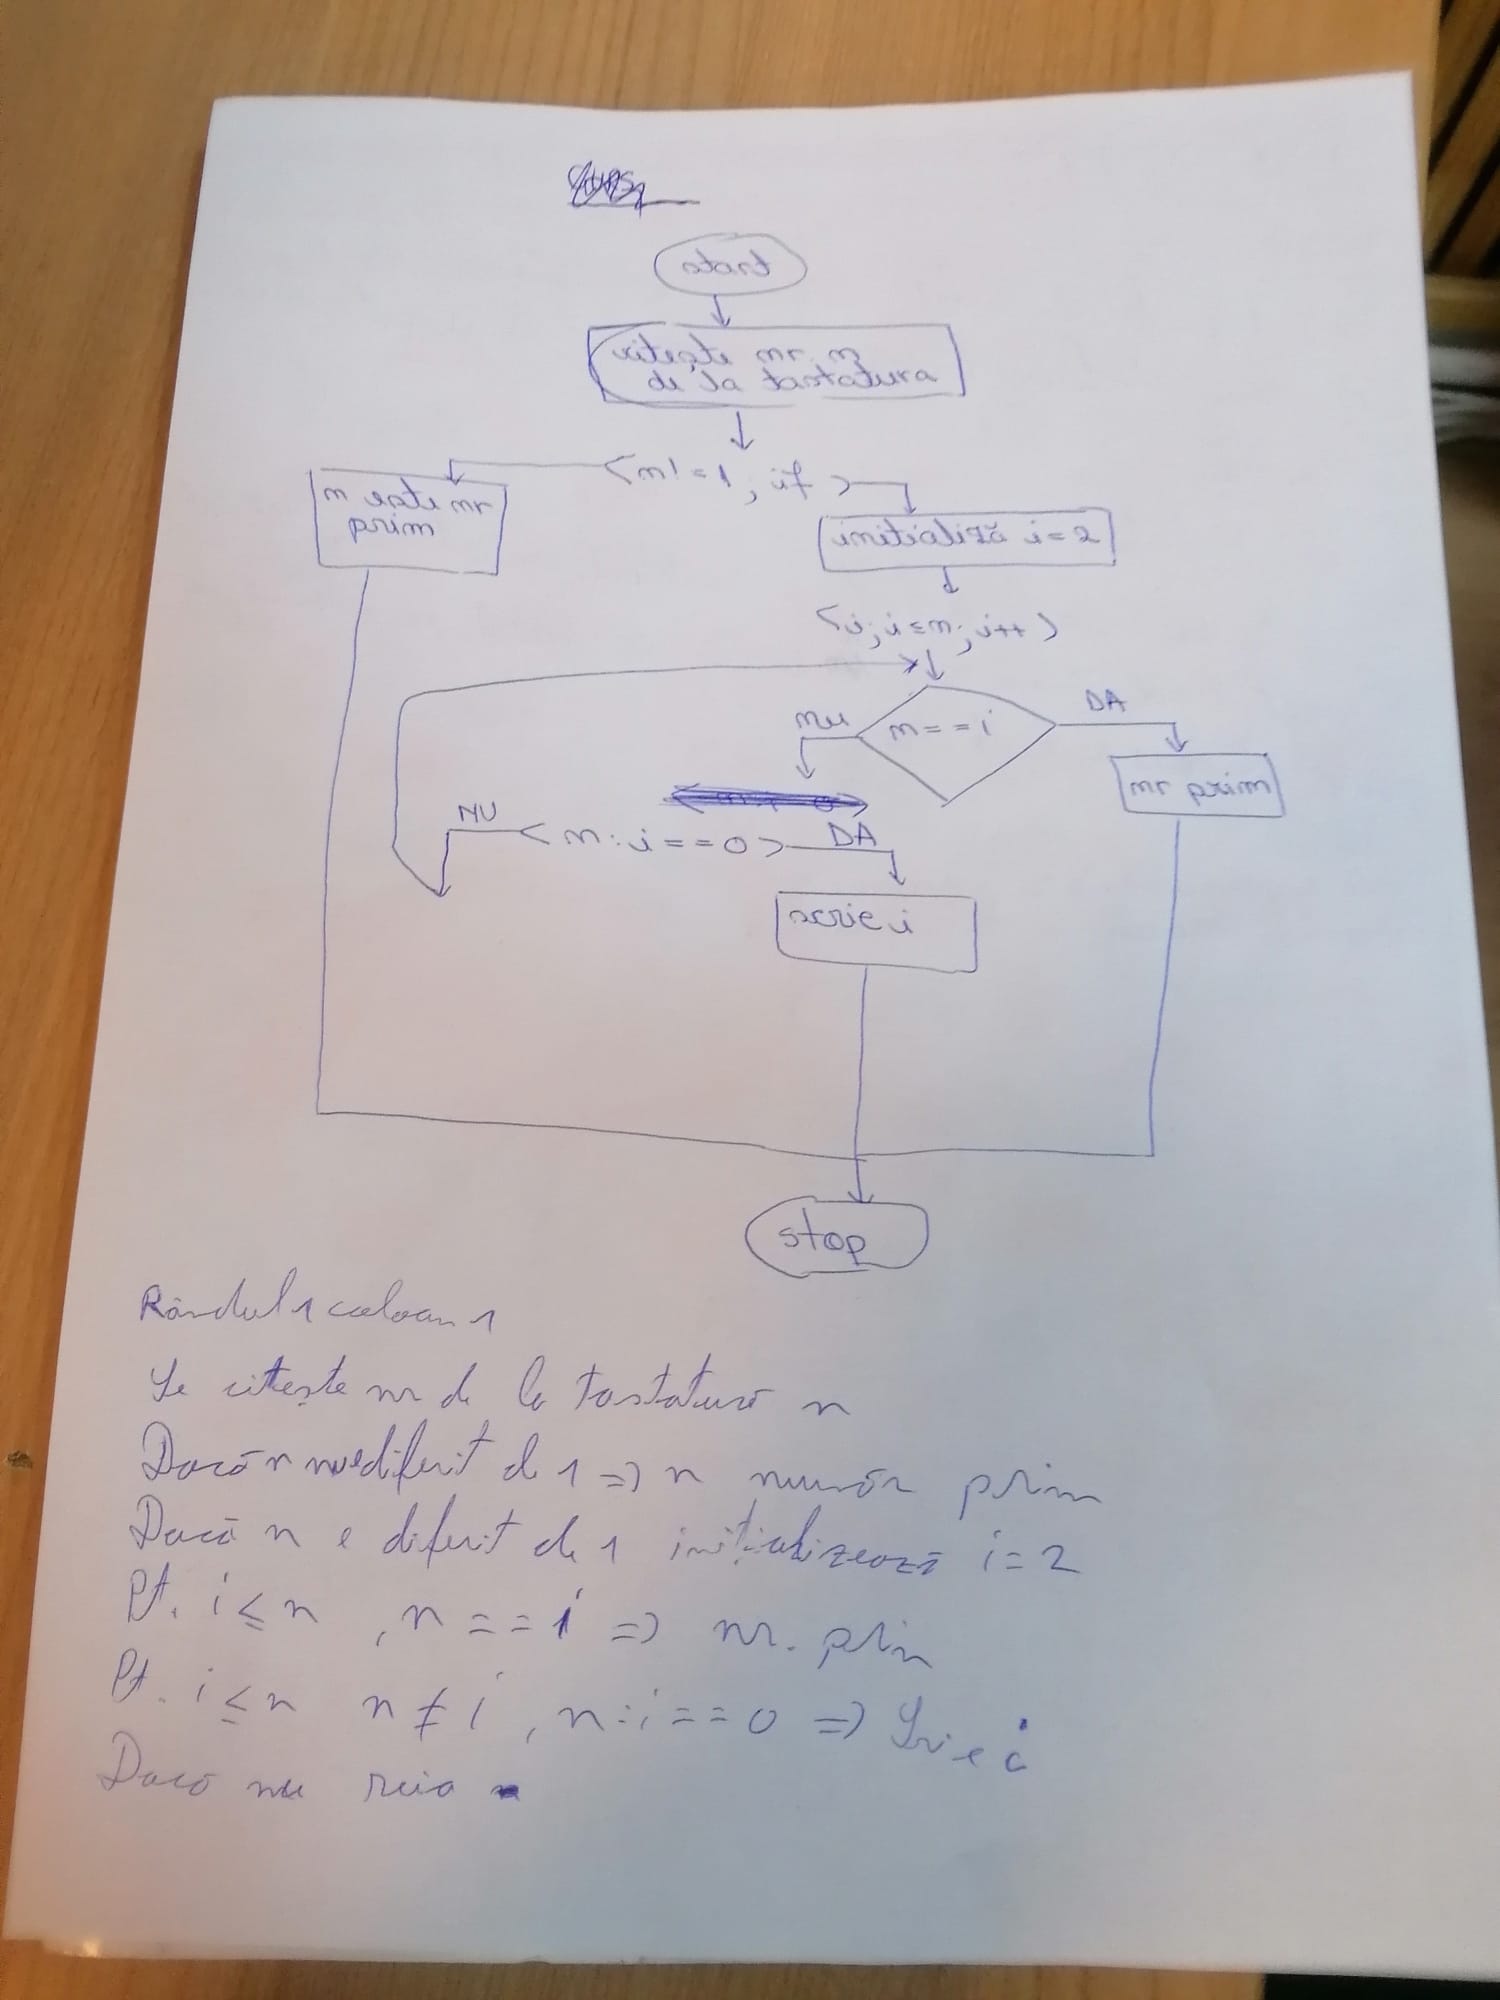 start
citește nr. n
de la tastatura
<n!=1, if>
n este nr
prim
initializă i=2
<i; i≤n; i++>
n==i
nu
DA
nr prim
NU
<n:i==0>
DA
scrie i
stop
Rândul 1 coloan 1
Se citește nr de la tastatură n
Dacă n nu e diferit de 1 => n număr prim
Dacă n e diferit de 1 inițializează i=2
Pt. i≤n, n==i => nr. prim
Pt. i≤n n≠i, n:i==0 => Scrie i
Dacă nu reia